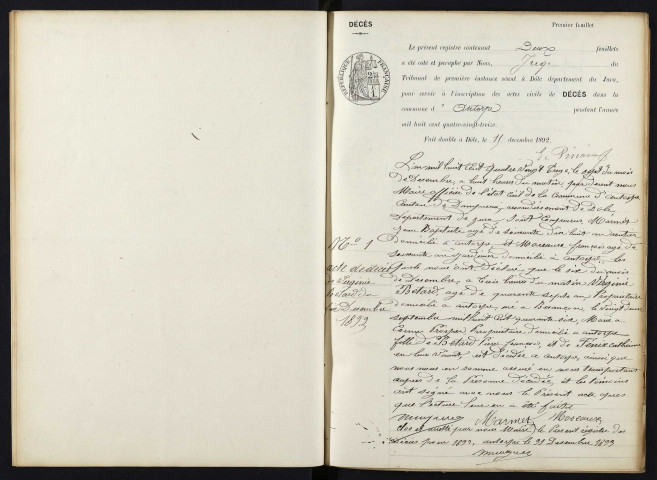 DÉCÈS
Premier feuillet
Le présent registre contenant Deux feuillets
a été coté et paraphé par Nous, Juge du
Tribunal de première instance séant à Dôle département du Jura,
pour servir à l'inscription des actes civils de DÉCÈS dans la
commune d' Antorpe pendant l'année
mil huit cent quatre-vingt-treize.
Fait double à Dôle, le 15 décembre 1892.
RÉPUBLIQUE FRANÇAISE
L'an mil huit Cent quatre vingt treize, le sept du mois
de Decembre, a huit heures du matin, par devant nous
Maire officier de l'état civil de la Commune d'antorpe
Canton de Dampierre, arrondissement de Dole
Departement du jura, sont Comparus Marmet
jean Baptiste agé de soixante dix huit an rentier
domicilié a antorpe, et Moreaux françois agé de
soixante an jardinier domicilié a antorpe, les
quels nous ont Déclaré que le six du mois
de Decembre, a trois heures du matin Virginie
Bétard, agé de quarante sept an Propriétaire
domicilié a antorpe, né a Besançon le vingt deux
septembre mil huit Cent quarante six, Marié a
Prosper, Propriétaire domicilié a antorpe
fille de Bétard françois, et de Catherine
est décédée a antorpe, ainsi que
nous nous en somme assuré en nous transportant
aupres de la Personne Décédée, et les temoins
ont signé avec nous le Présent acte apres
que lecture leur en a été faite
Marmet Moreaux
N° 1
acte de décès
de Virginie
Bétard du
six Decembre
1893
clos et arrêté par nous Maire, le Présent registre des
Décès pour 1893, antorpe le 31 Decembre 1893